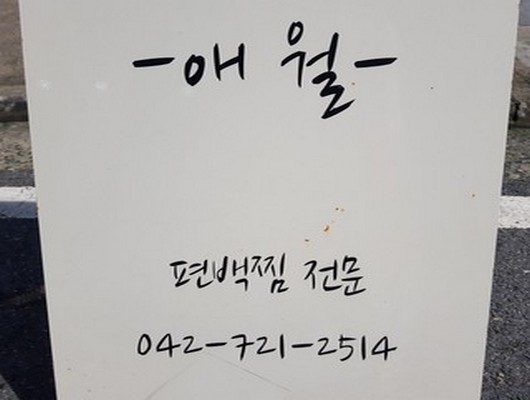 -애월-
편백찜 전문
042-721-2514